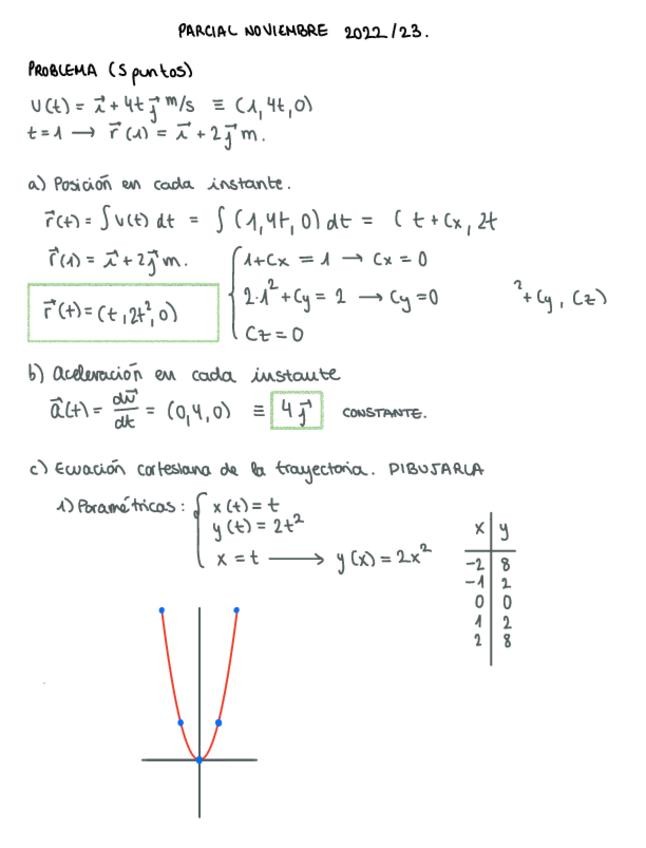 PARCIAL NOVIEMBRE 2022/23.
PROBLEMA (5 puntos)
v(t) = i⃗ + 4t j⃗ m/s ≡ (1, 4t, 0)
t = 1 → r⃗(1) = i⃗ + 2j⃗ m.
a) Posición en cada instante.
r⃗(t) = ∫v(t) dt = ∫(1, 4t, 0) dt = (t + Cx, 2t
r⃗(1) = i⃗ + 2j⃗ m. { 1 + Cx = 1 → Cx = 0
r⃗(t) = (t, 2t², 0) 2·1² + Cy = 2 → Cy = 0 ² + Cy, Cz)
Cz = 0
b) Aceleración en cada instante
a⃗(t) = dv⃗/dt = (0, 4, 0) ≡ 4j⃗ CONSTANTE.
c) Ecuación cartesiana de la trayectoria. DIBUJARLA
1) Paramétricas: { x(t) = t
y(t) = 2t²
x = t → y(x) = 2x²
x y
-2 8
-1 2
0 0
1 2
2 8